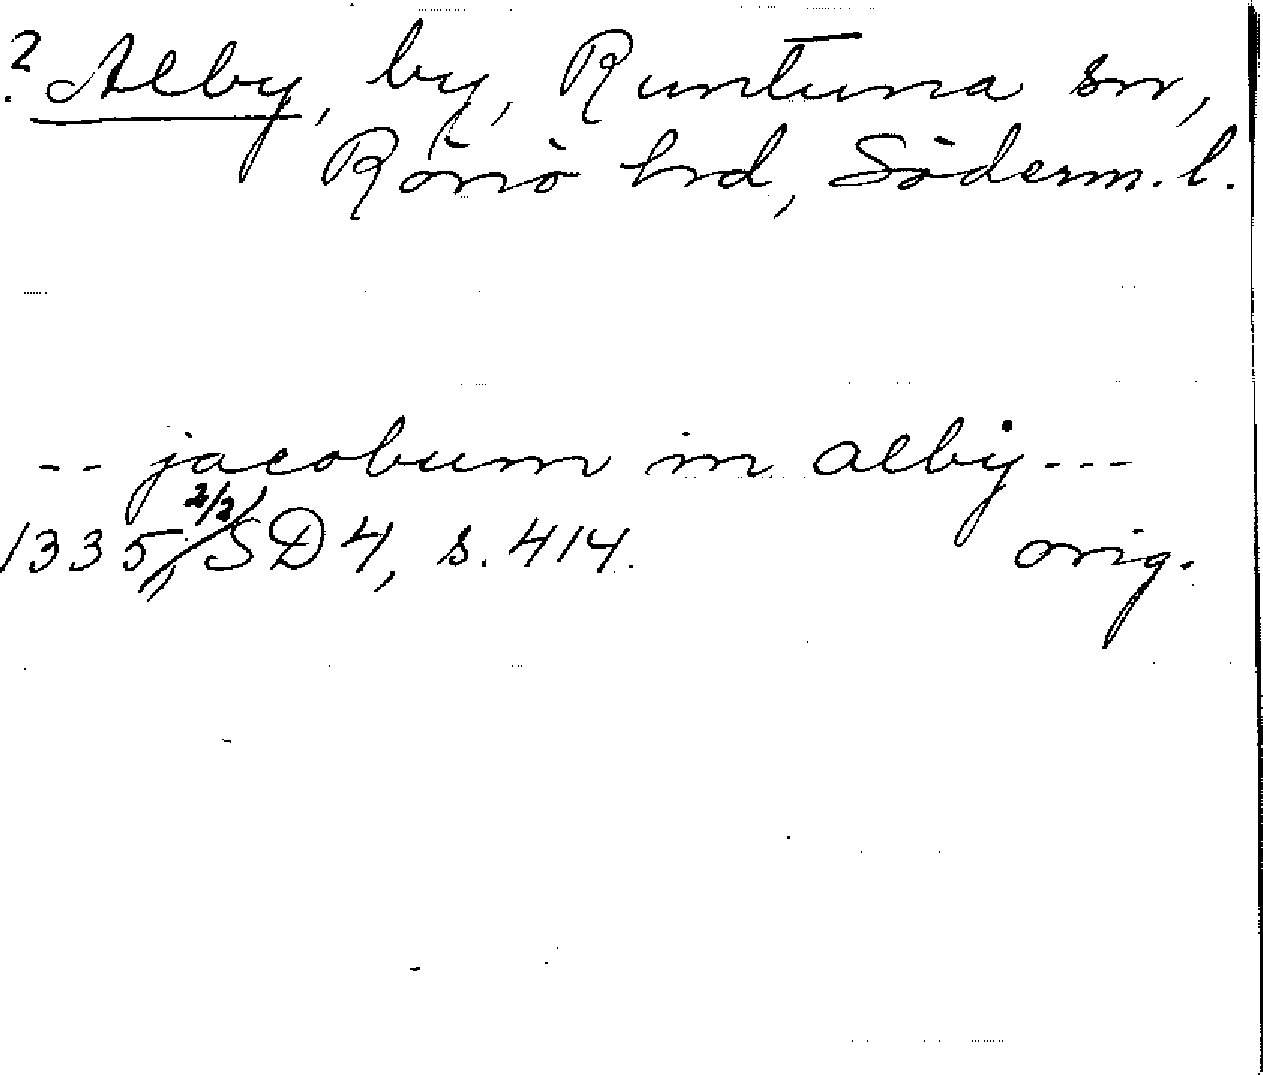 ? Alby, by, Runtuna sn,
Rönö hrd, Söderm. l.
-- jacobum in alby ---
1335 2/2 SD 4, s. 414. orig.